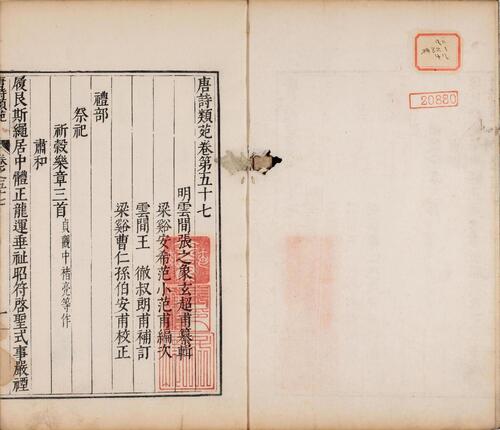 唐詩類苑卷第五十七
明雲間張之象玄超甫纂輯
梁谿安希范小范甫編次
雲間王徹叔朗甫補訂
梁谿曹仁孫伯安甫校正
禮部
祭祀
祈穀樂章三首貞觀中褚亮等作
肅和
履艮斯繩居中體正龍運垂祉昭符啓聖式事嚴禋
唐詩類苑
20880